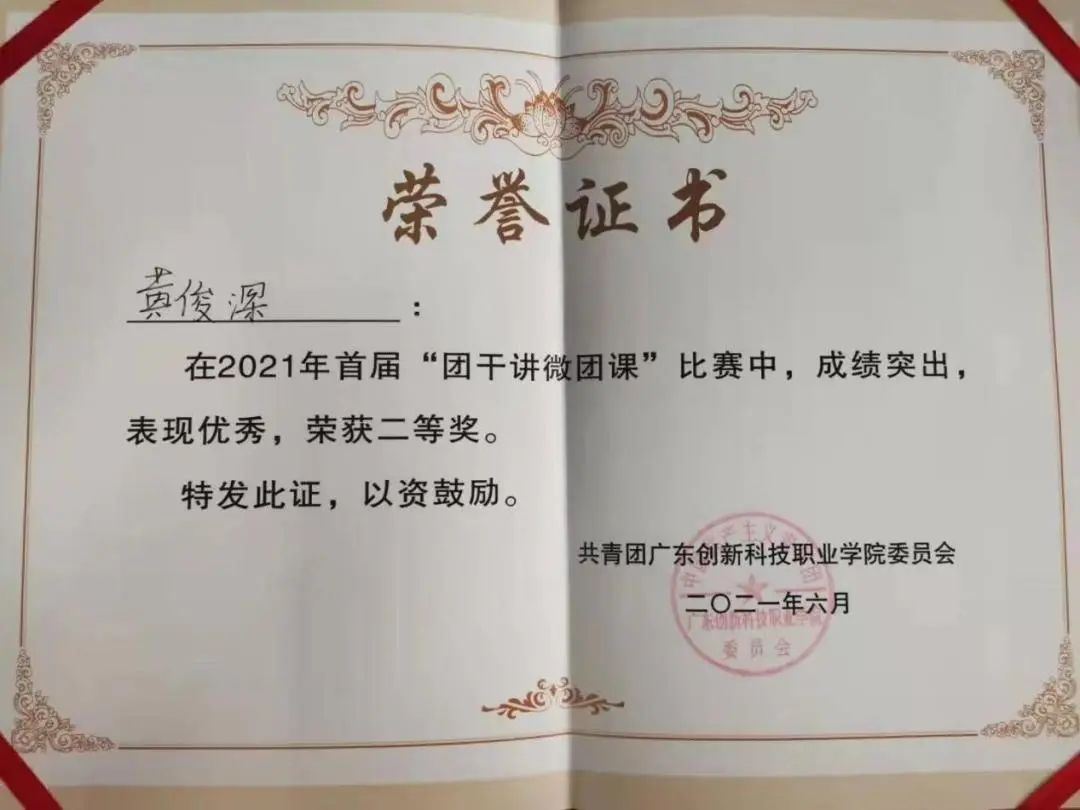 荣誉证书
黄俊深：
在2021年首届“团干讲微团课”比赛中，成绩突出，
表现优秀，荣获二等奖。
特发此证，以资鼓励。
共青团广东创新科技职业学院委员会
二〇二一年六月
广东创新科技职业学院
委员会